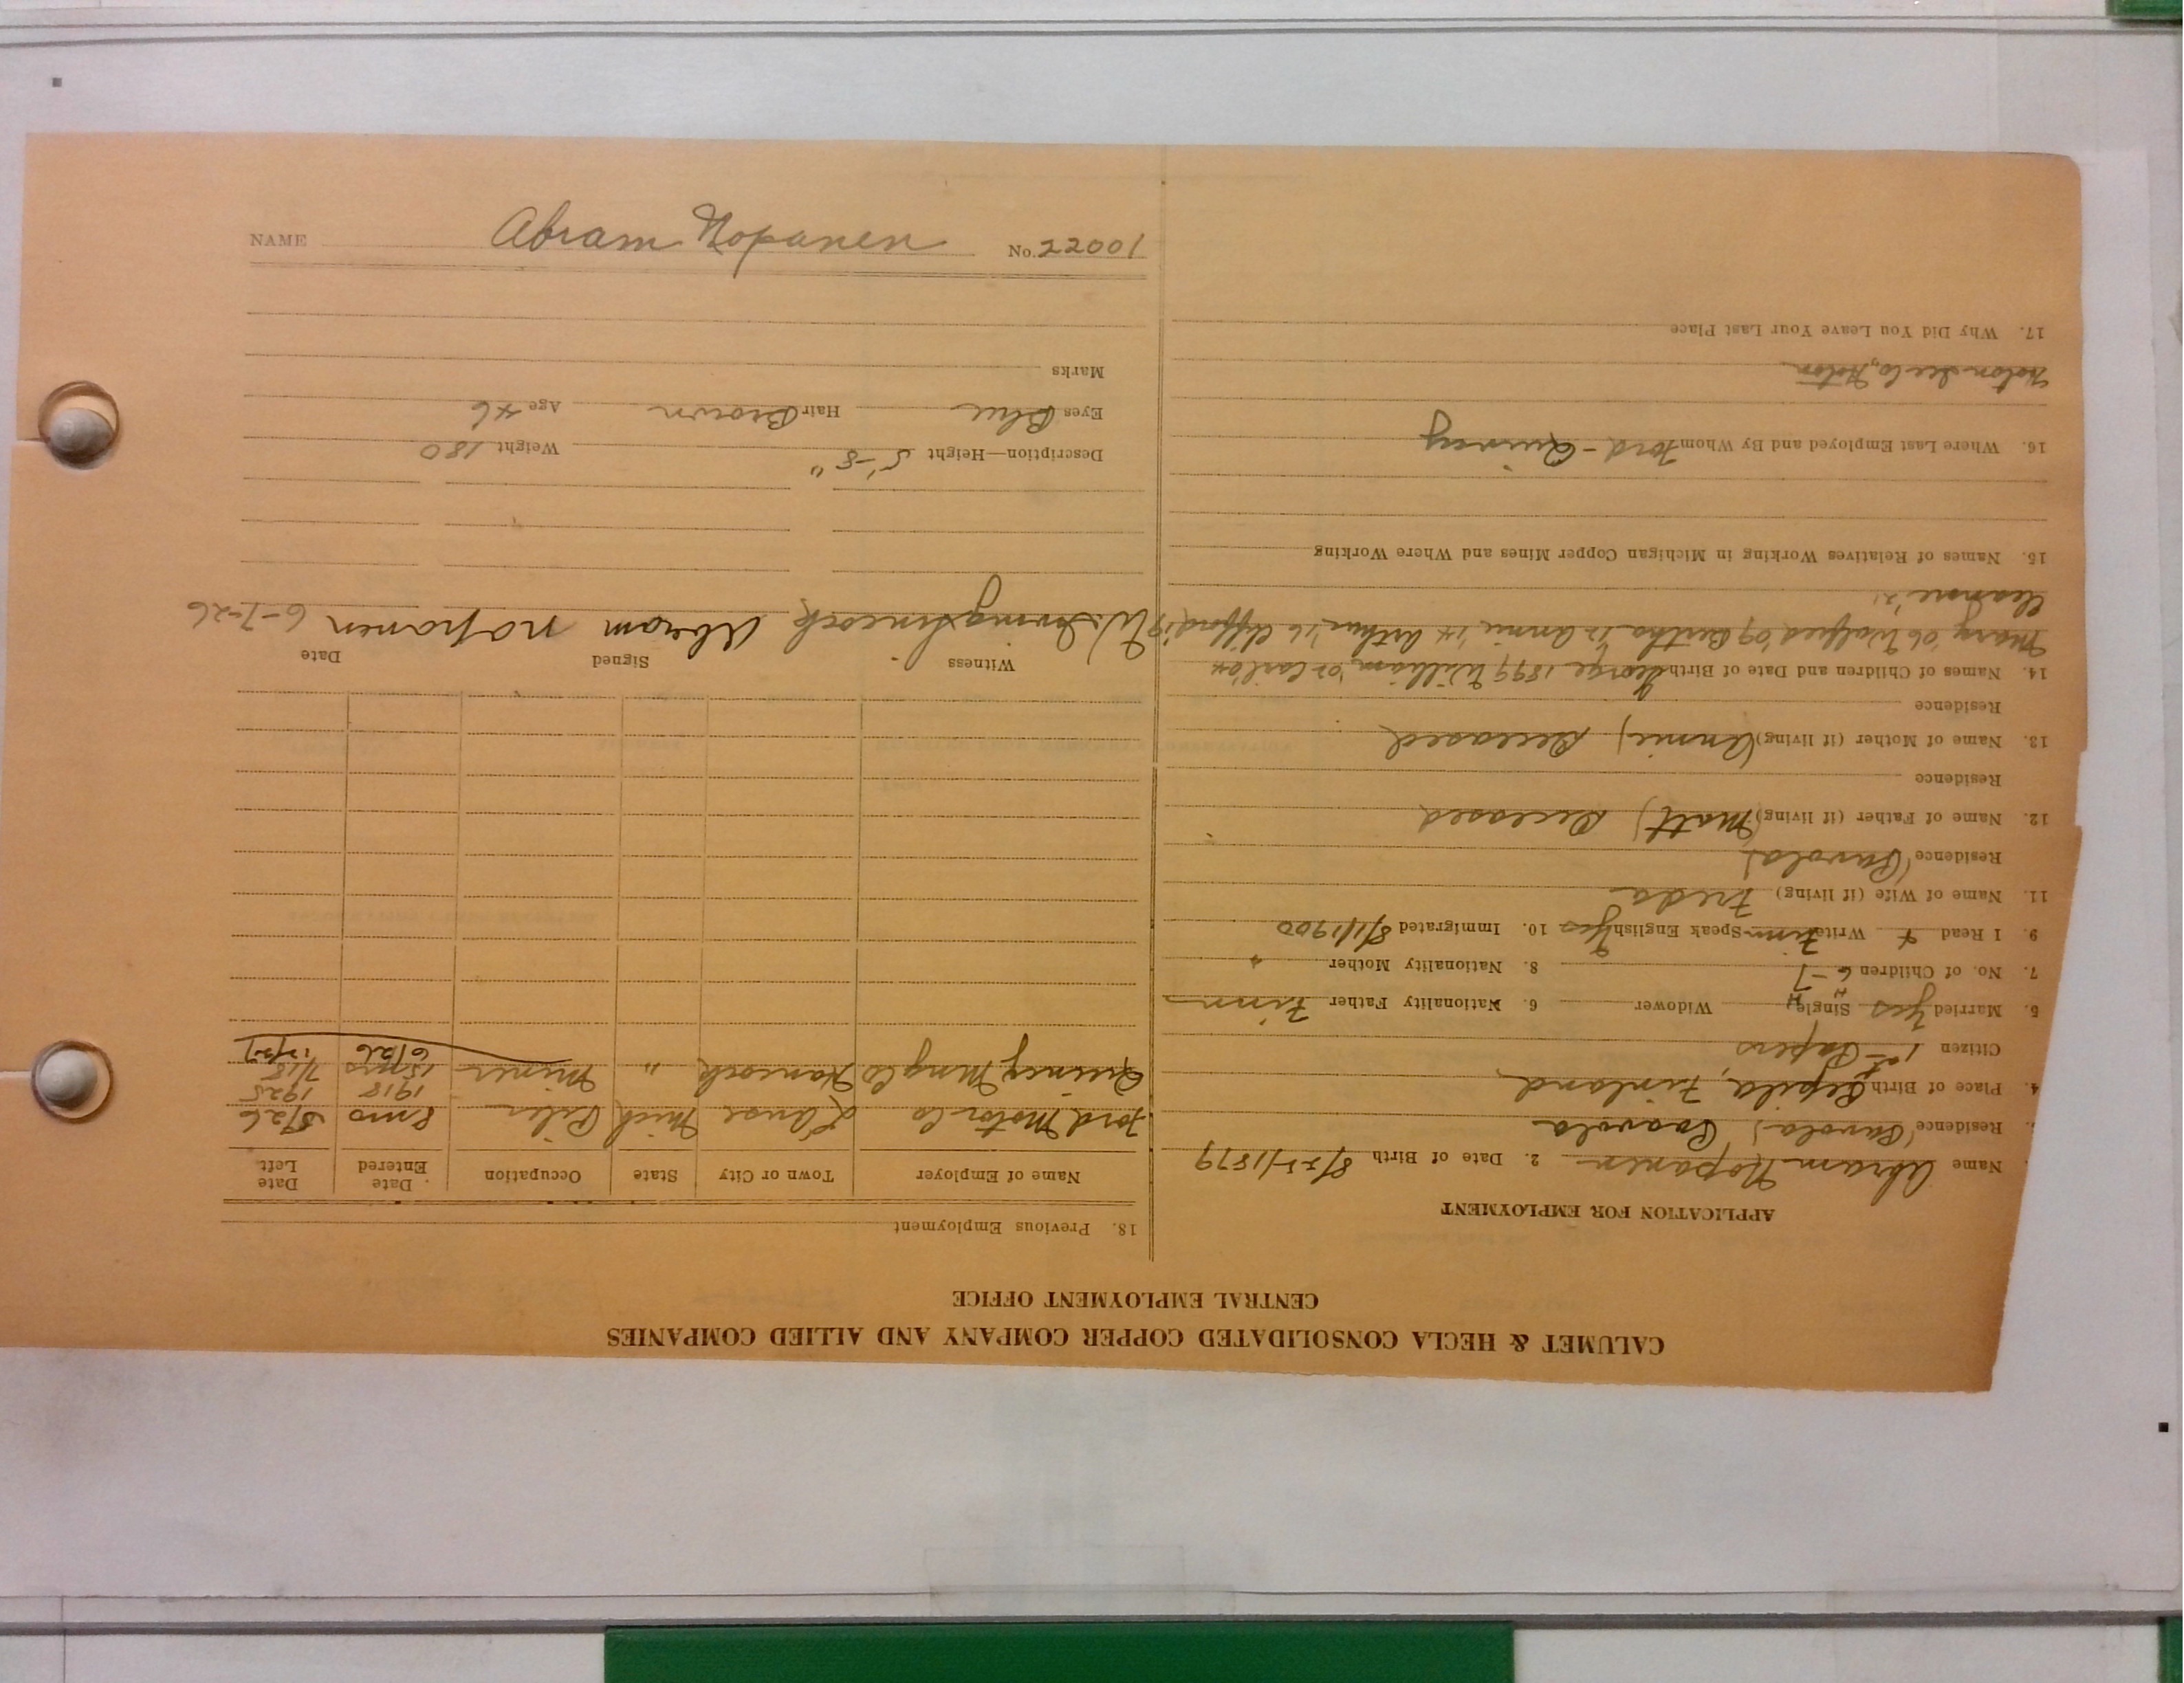 CALUMET & HECLA CONSOLIDATED COPPER COMPANY AND ALLIED COMPANIES
CENTRAL EMPLOYMENT OFFICE
APPLICATION FOR EMPLOYMENT
Name Abram Nopanen 2. Date of Birth 8/22/1879
Residence (Pavola) Paavola
4. Place of Birth Finland
Citizen 1st Papers
5. Married Yes Single Widower 6. Nationality Father Finn
7. No. of Children 6-7 8. Nationality Mother "
9. I Read Write Finn Speak English Yes 10. Immigrated 8/1/1900
11. Name of Wife (if living) Freda
Residence (Pavola)
12. Name of Father (if living) (Matt) Deceased
Residence
13. Name of Mother (if living) (Annie) Deceased
Residence
14. Names of Children and Date of Birth George 1899 William '02 Carl '04
Mary '06 Walfred '09 Bertha '12 Annie '14 Arthur '16 Clifford '19
Eleanore '21
15. Names of Relatives Working in Michigan Copper Mines and Where Working
16. Where Last Employed and By Whom Ford - Quincy
17. Why Did You Leave Your Last Place
18. Previous Employment
Name of Employer Town or City State Occupation Date Entered Date Left
Ford Motor Co L'Anse Mich Piler 8 mo 5/26
1918 1925
Quincy Mng Co Hancock " Miner 15 yrs 7/18
6/26 12/27
Witness Signed Date
Abram Napanen 6-7-26
Description—Height 5'-8" Weight 180
Eyes Blue Hair Brown Age 46
Marks
NAME Abram Nopanen No. 22001